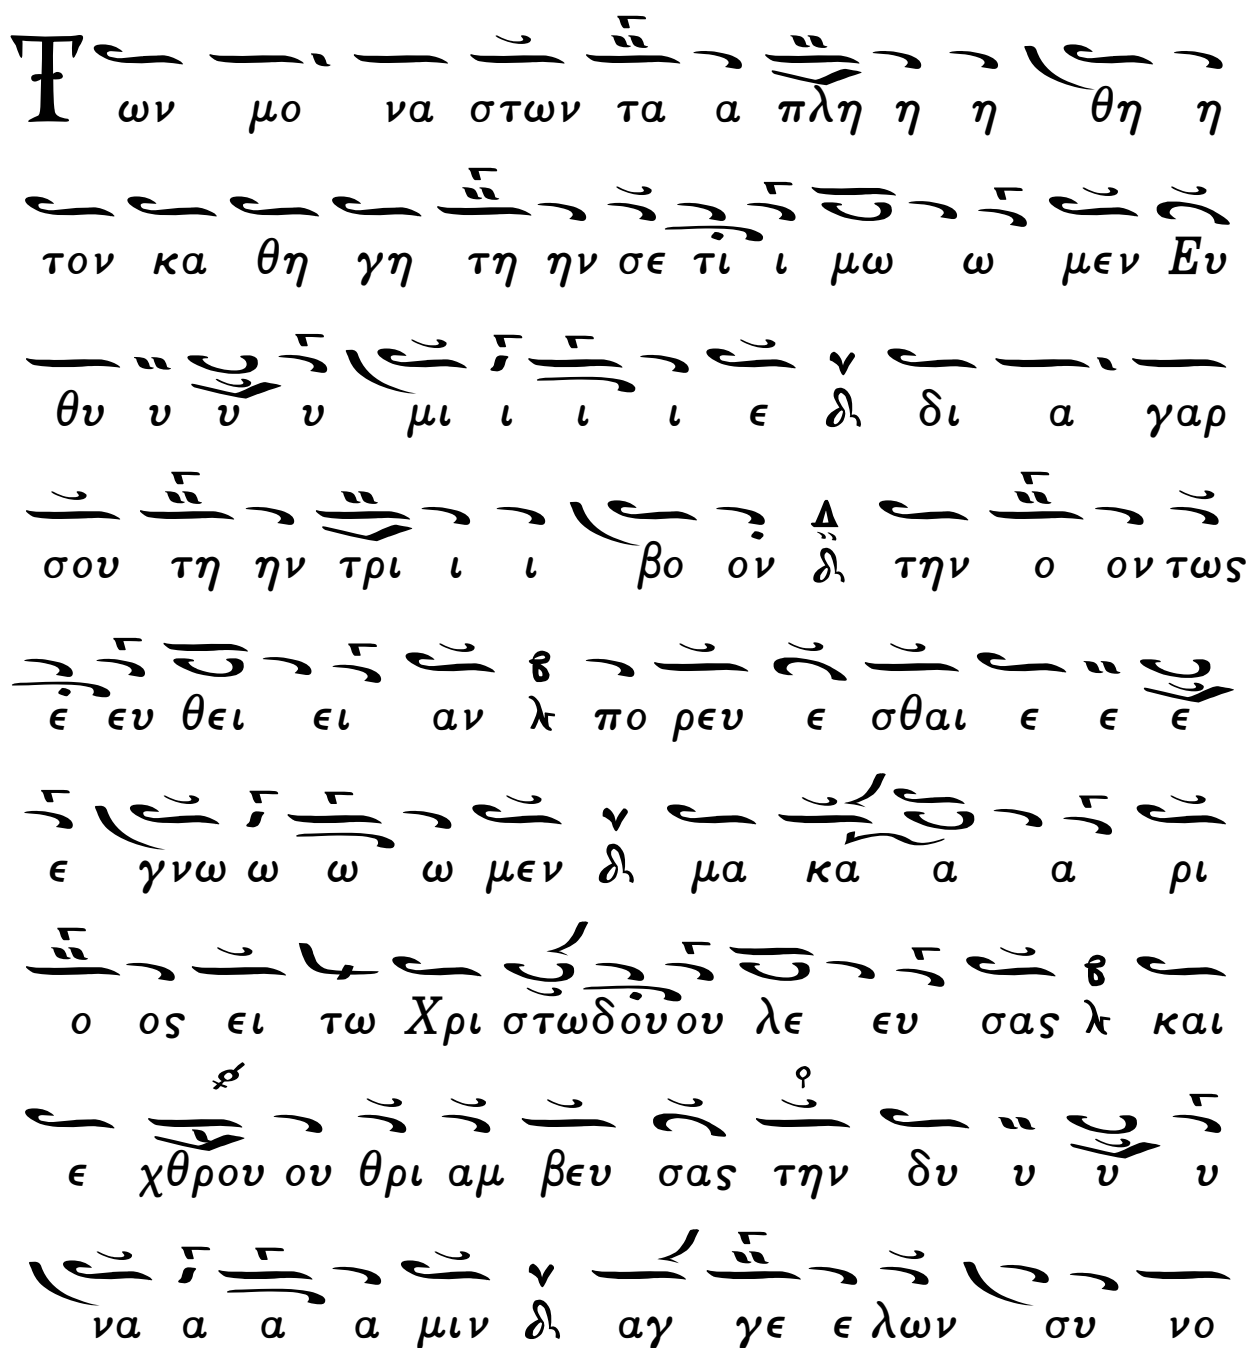 Τ ων μο να στων τα α πλη η η θη η
τον κα θη γη τη ην σε τι ι μω ω μεν Ευ
θυ υ υ υ μι ι ι ι ε δι α γαρ
σου τη ην τρι ι ι βο ον Δ την ο ον τως
ε ευ θει ει αν πο ρευ ε σθαι ε ε ε
ε γνω ω ω ω μεν μα κα α α ρι
ο ος ει τω Χρι στω δου ου λε ευ σας και
ε χθρου ου θρι αμ βευ σας την δυ υ υ υ
να α α α μιν αγ γε ε λων συ νο